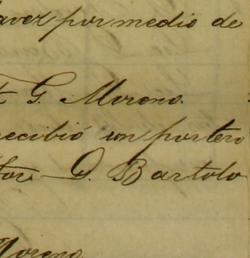 avez por medio de
G. Moreno.
recibió un portero
D. Bartolo
Moreno